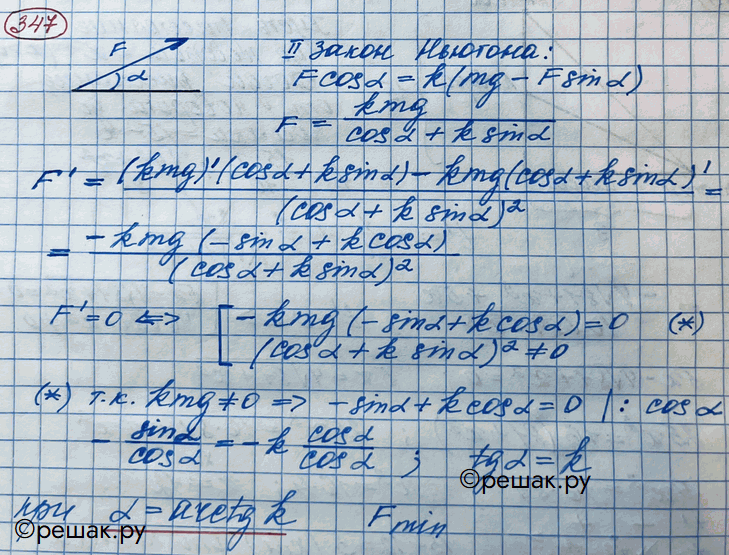 347
F
α
II Закон Ньютона:
F cosα = k(mg − F sinα)
F = kmg / (cosα + k sinα)
F' = ((kmg)'(cosα + k sinα) − kmg(cosα + k sinα)') / (cosα + k sinα)² =
= −kmg (−sinα + k cosα) / (cosα + k sinα)²
F' = 0 <=> [ −kmg (−sinα + k cosα) = 0 (*)
(cosα + k sinα)² ≠ 0
(*) т.к. kmg ≠ 0 => −sinα + k cosα = 0 | : cosα
− sinα / cosα = −k cosα / cosα ; tgα = k
©решак.ру
при α = arctg k F min
©решак.ру